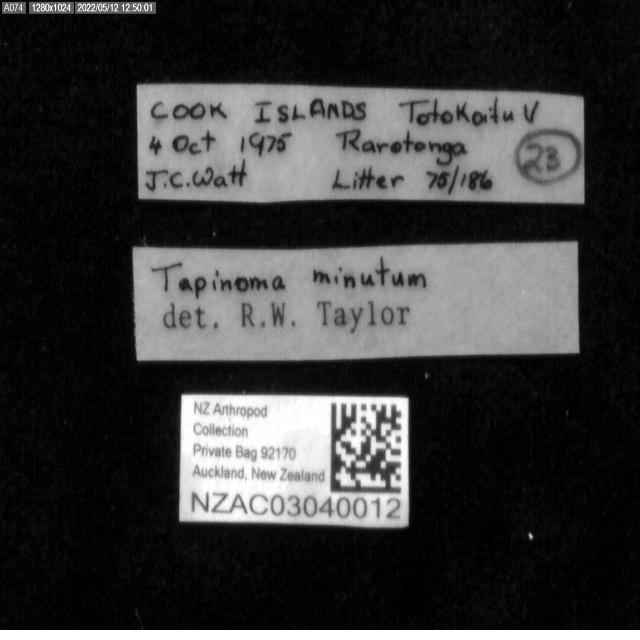 A074 1280x1024 2022/05/12 12:50:01
COOK ISLANDS Totokoitu V
4 Oct 1975 Rarotonga 23
J.C.Watt Litter 75/186
Tapinoma minutum
det. R.W. Taylor
NZ Arthropod
Collection
Private Bag 92170
Auckland, New Zealand
NZAC03040012